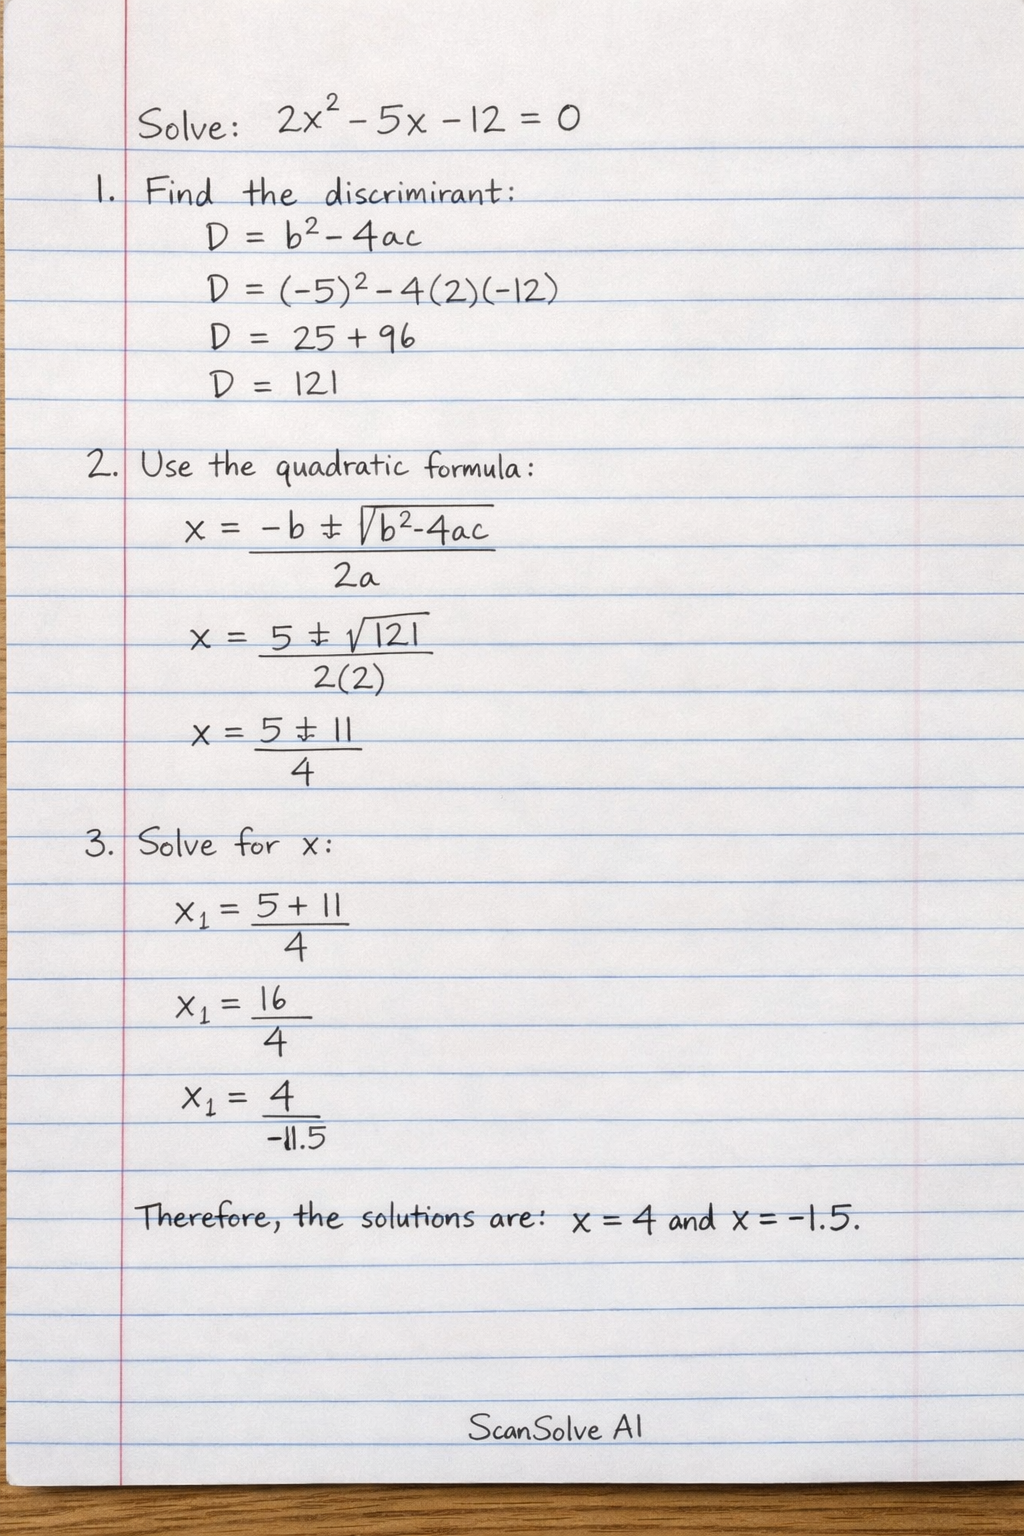 Solve: 2x² - 5x - 12 = 0
1. Find the discrimirant:
D = b² - 4ac
D = (-5)² - 4(2)(-12)
D = 25 + 96
D = 121
2. Use the quadratic formula:
x = -b ± √b²-4ac
2a
x = 5 ± √121
2(2)
x = 5 ± 11
4
3. Solve for x:
x₁ = 5 + 11
4
x₁ = 16
4
x₁ = 4
-11.5
Therefore, the solutions are: x = 4 and x = -1.5.
ScanSolve AI